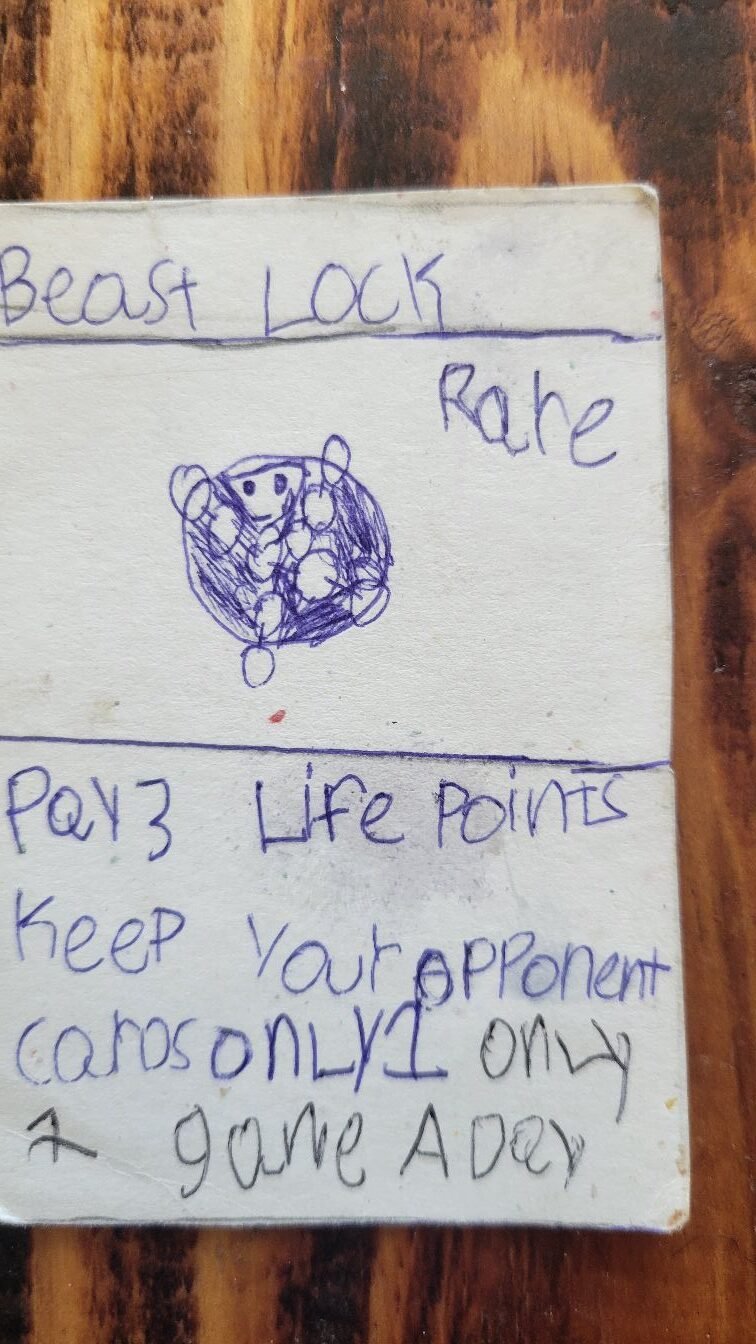 Beast Lock
Rare
Pay 3 Life Points
Keep Your Opponent
cards only 1 only
1 game A Day